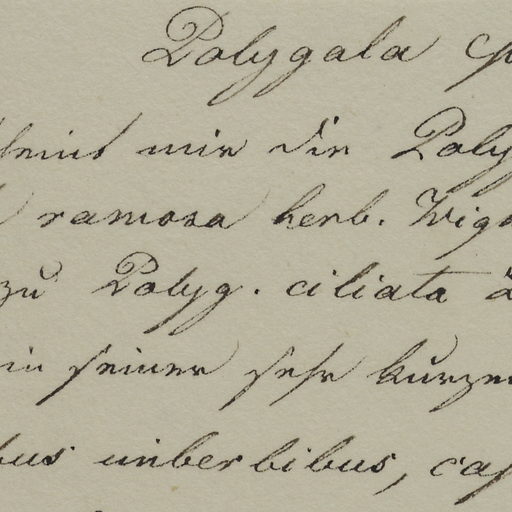 Polygala
mir die Poly
ramosa herb. Wig
zu Polyg. ciliata
in seiner sehr kurzen
bus imberbibus, ca